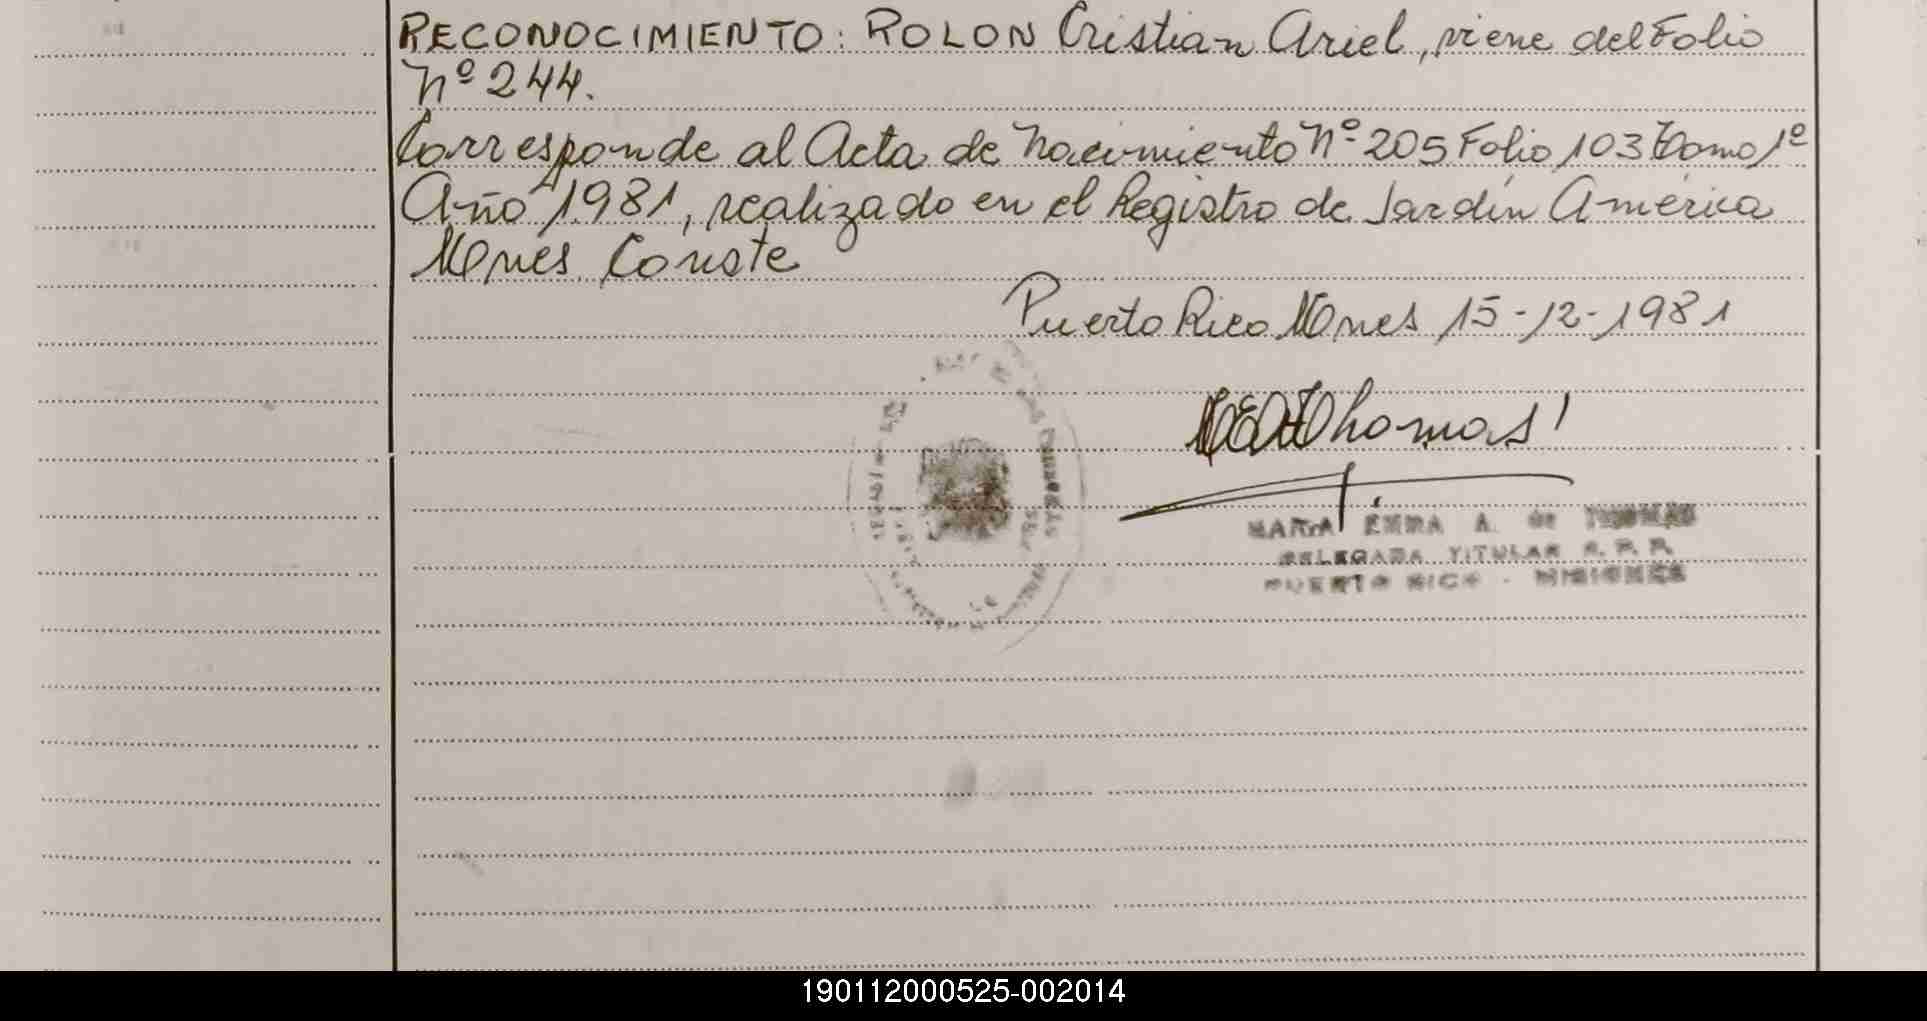 RECONOCIMIENTO: ROLON Cristian Ariel, viene del Folio
Nº 244.
Corresponde al Acta de Nacimiento Nº 205 Folio 103 Tomo 1º
Año 1981, realizado en el Registro de Jardín América
Mnes. Conste
Puerto Rico Mnes 15-12-1981
Thomas
MARIA EMMA A. de THOMAS
DELEGADA TITULAR R. P. P.
PUERTO RICO - MISIONES
190112000525-002014